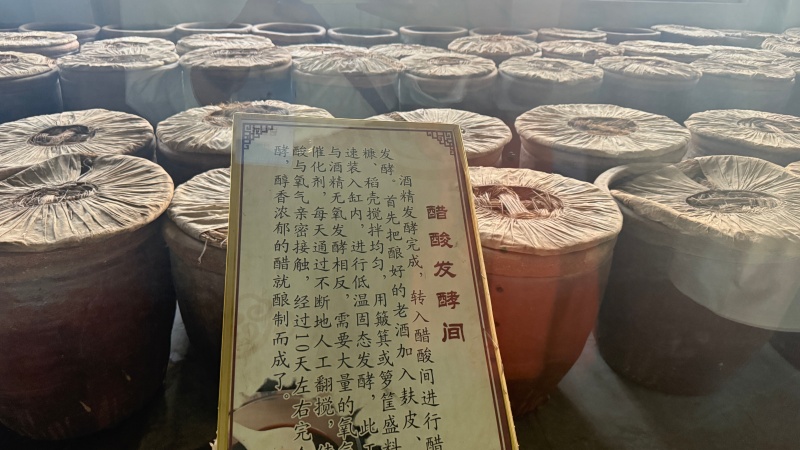 醋酸发酵间
酒精发酵完成，转入醋酸间进行醋
发酵。首先把酿好的老酒加入麸皮、
糠、稻壳搅拌均匀，用簸箕或箩筐盛料
速装入缸内，进行低温固态发酵，此工
与酒精无氧发酵相反，需要大量的氧气
催化剂，每天通过不断地人工翻搅，
酸与氧气亲密接触，经过10天左右完
酵，醇香浓郁的醋就酿制而成了。